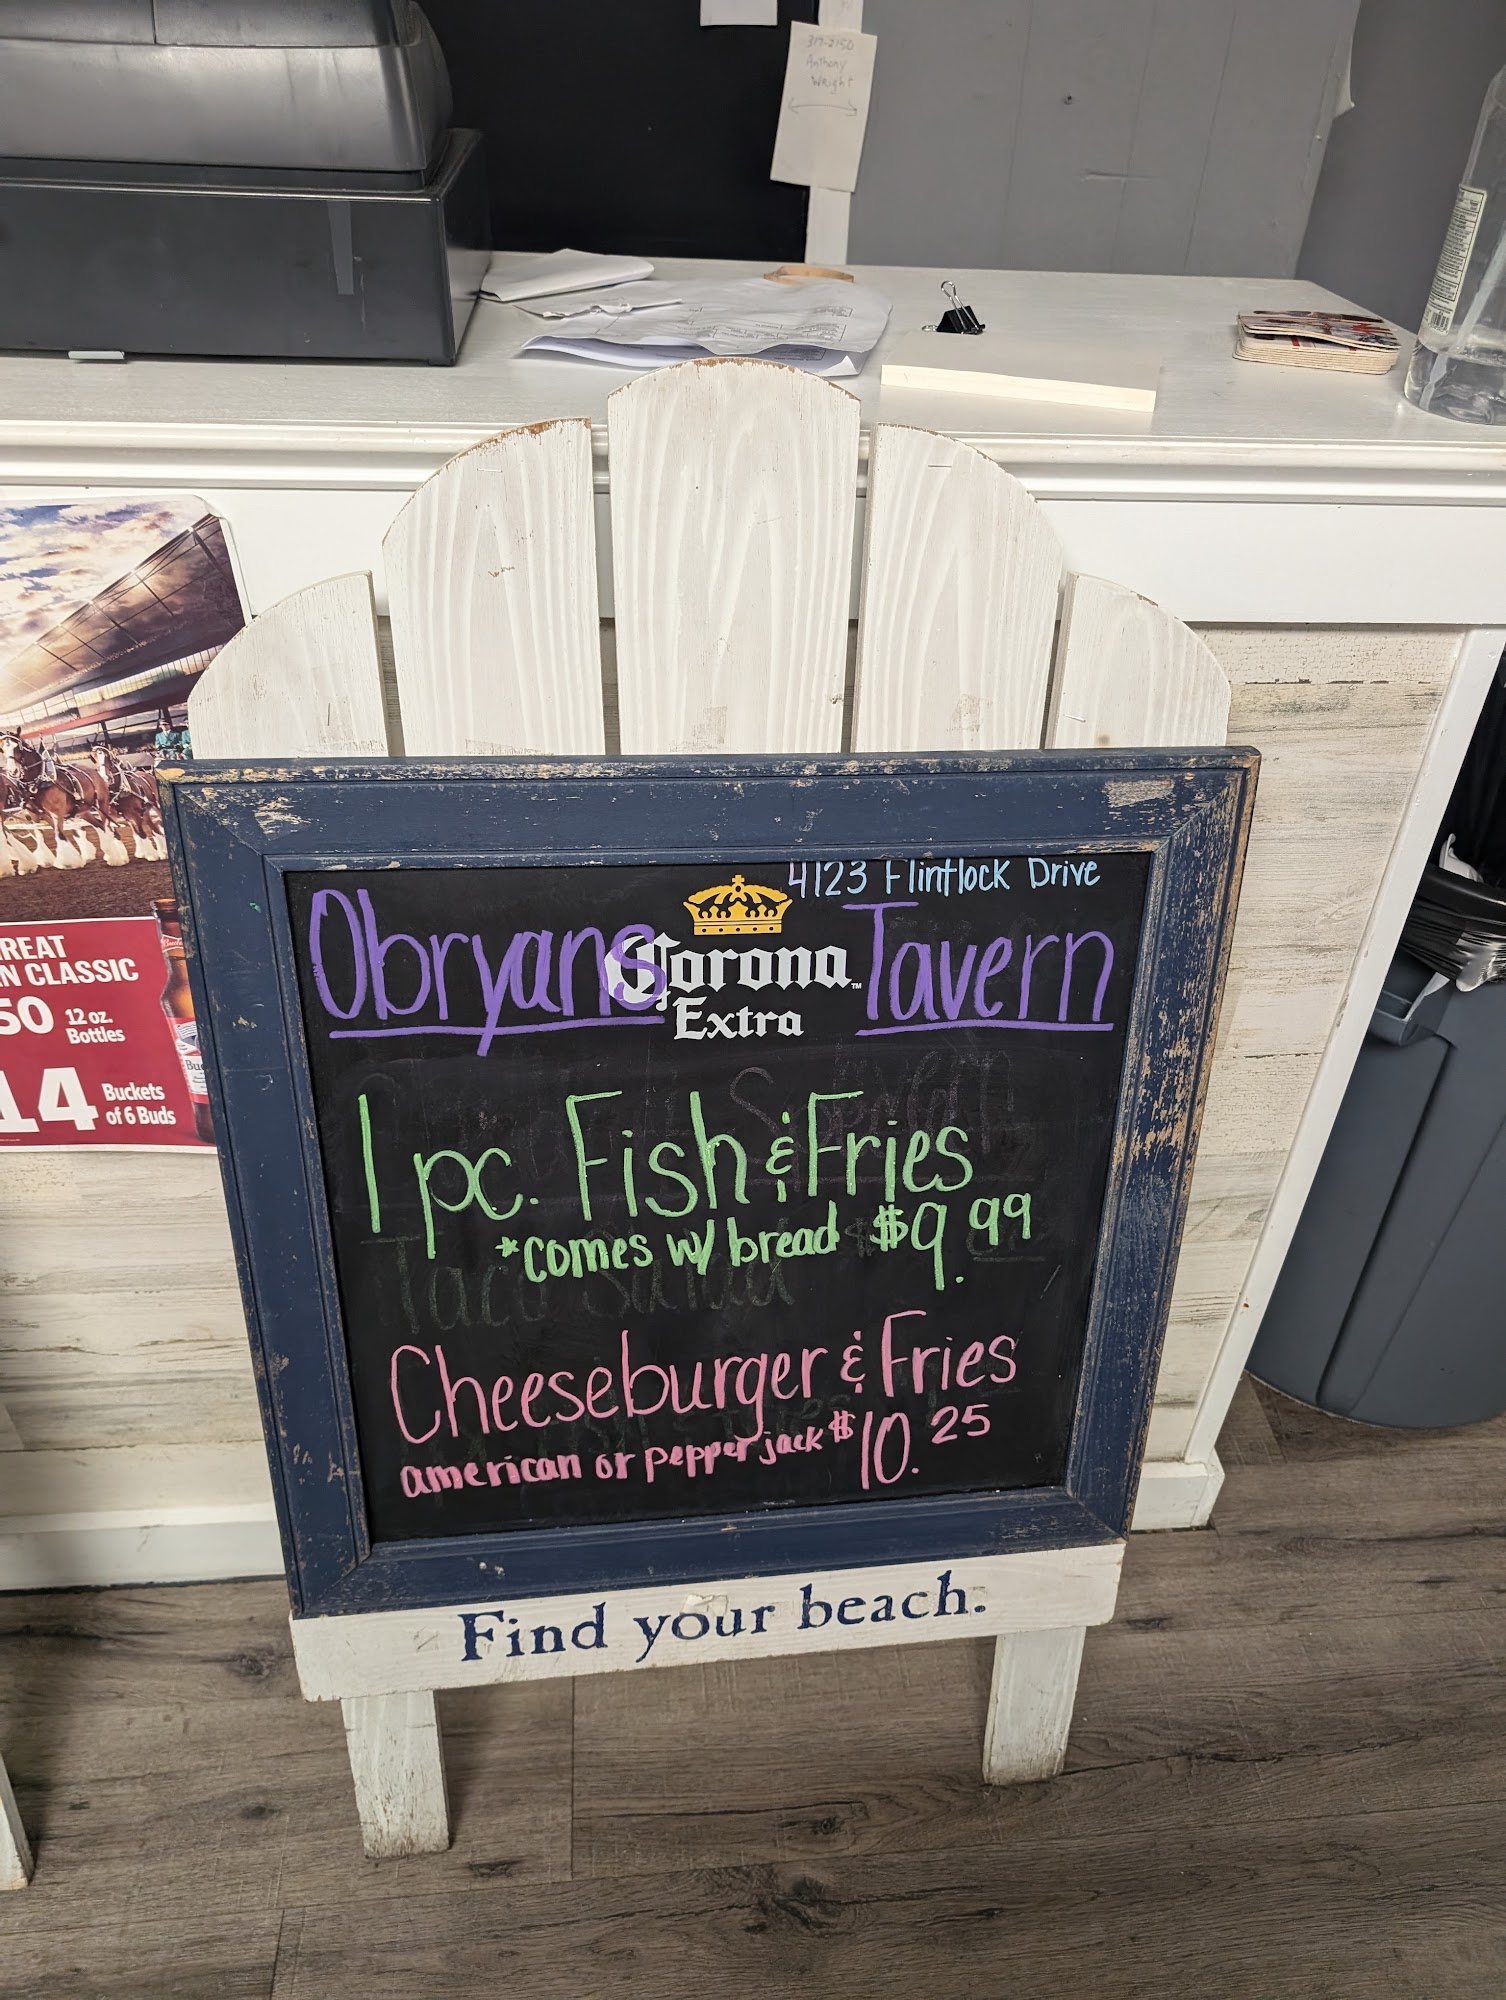 317-2150
Anthony
Wright
4123 Flintlock Drive
Obryans Tavern
Corona
Extra
1 pc. Fish & Fries
*comes w/ bread $9.99
Taco Salad
Cheeseburger & Fries
american or pepper jack $10.25
Find your beach.
REAT
N CLASSIC
50 12 oz.
Bottles
14 Buckets
of 6 Buds